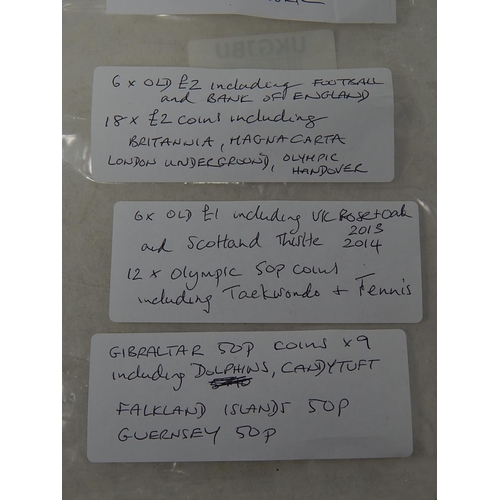 UKG1BU
6 x OLD £2 including FOOTBALL
and BANK OF ENGLAND
18 x £2 coins including
BRITANNIA, MAGNA CARTA
LONDON UNDERGROUND, OLYMPIC
HANDOVER
6x OLD £1 including UK Rose + Oak
2013
and Scotland Thistle 2014
12 x Olympic 50p coins
including Taekwondo + Tennis
GIBRALTAR 50P coins x9
including DOLPHINS, CANDYTUFT
FALKLAND ISLANDS 50P
GUERNSEY 50P